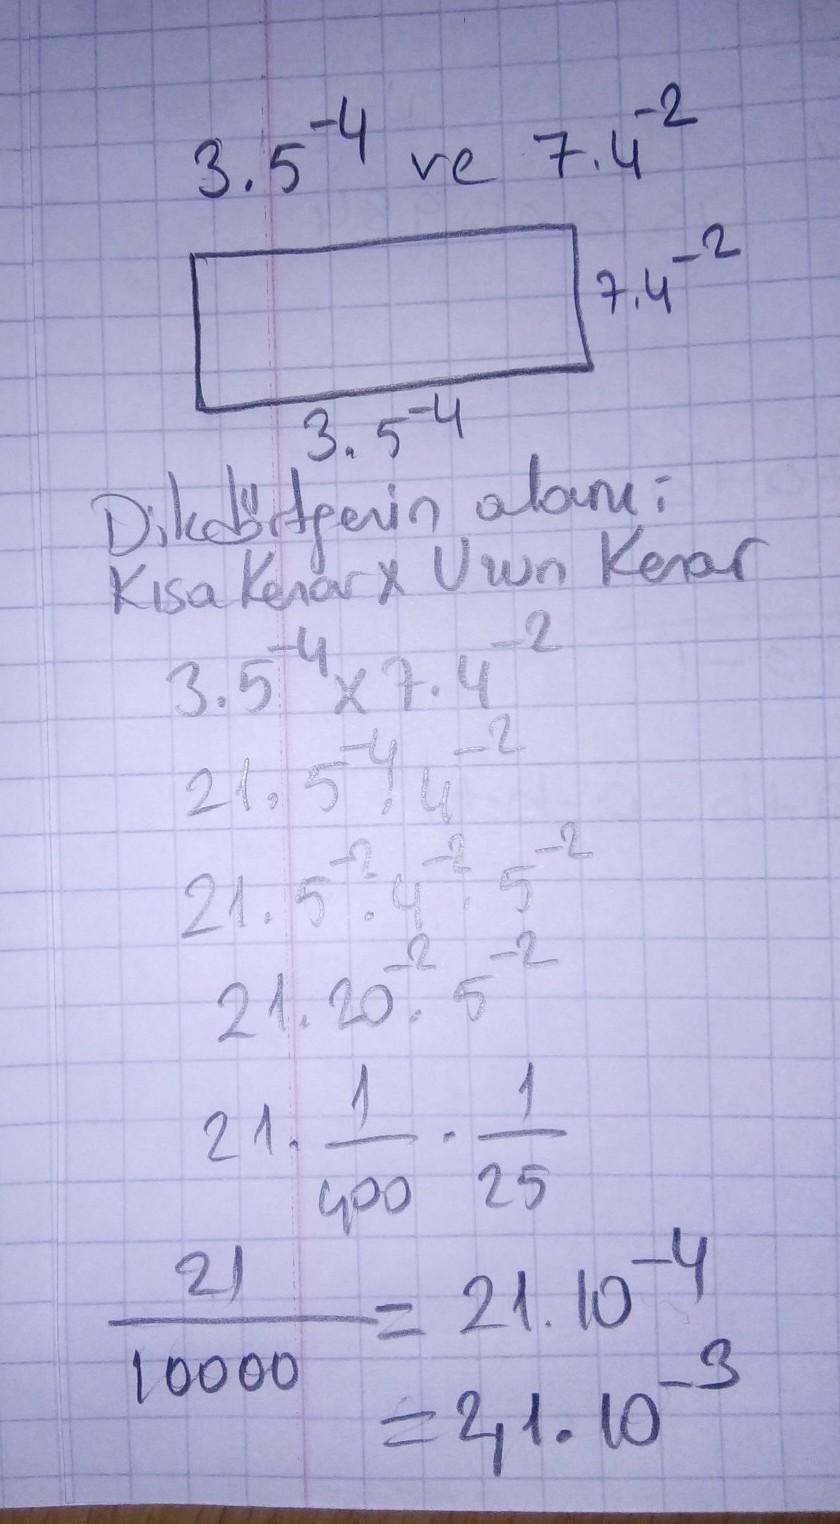 3.5⁻⁴ ve 7.4⁻²
7.4⁻²
3.5⁻⁴
Dikdörtgenin alanı:
Kısa Kenar x Uzun Kenar
3.5⁻⁴ x 7.4⁻²
21.5⁻⁴.4⁻²
21.5⁻².4⁻².5⁻²
21.20⁻².5⁻²
21. 1/400 . 1/25
21/10000 = 21.10⁻⁴
= 2,1.10⁻³